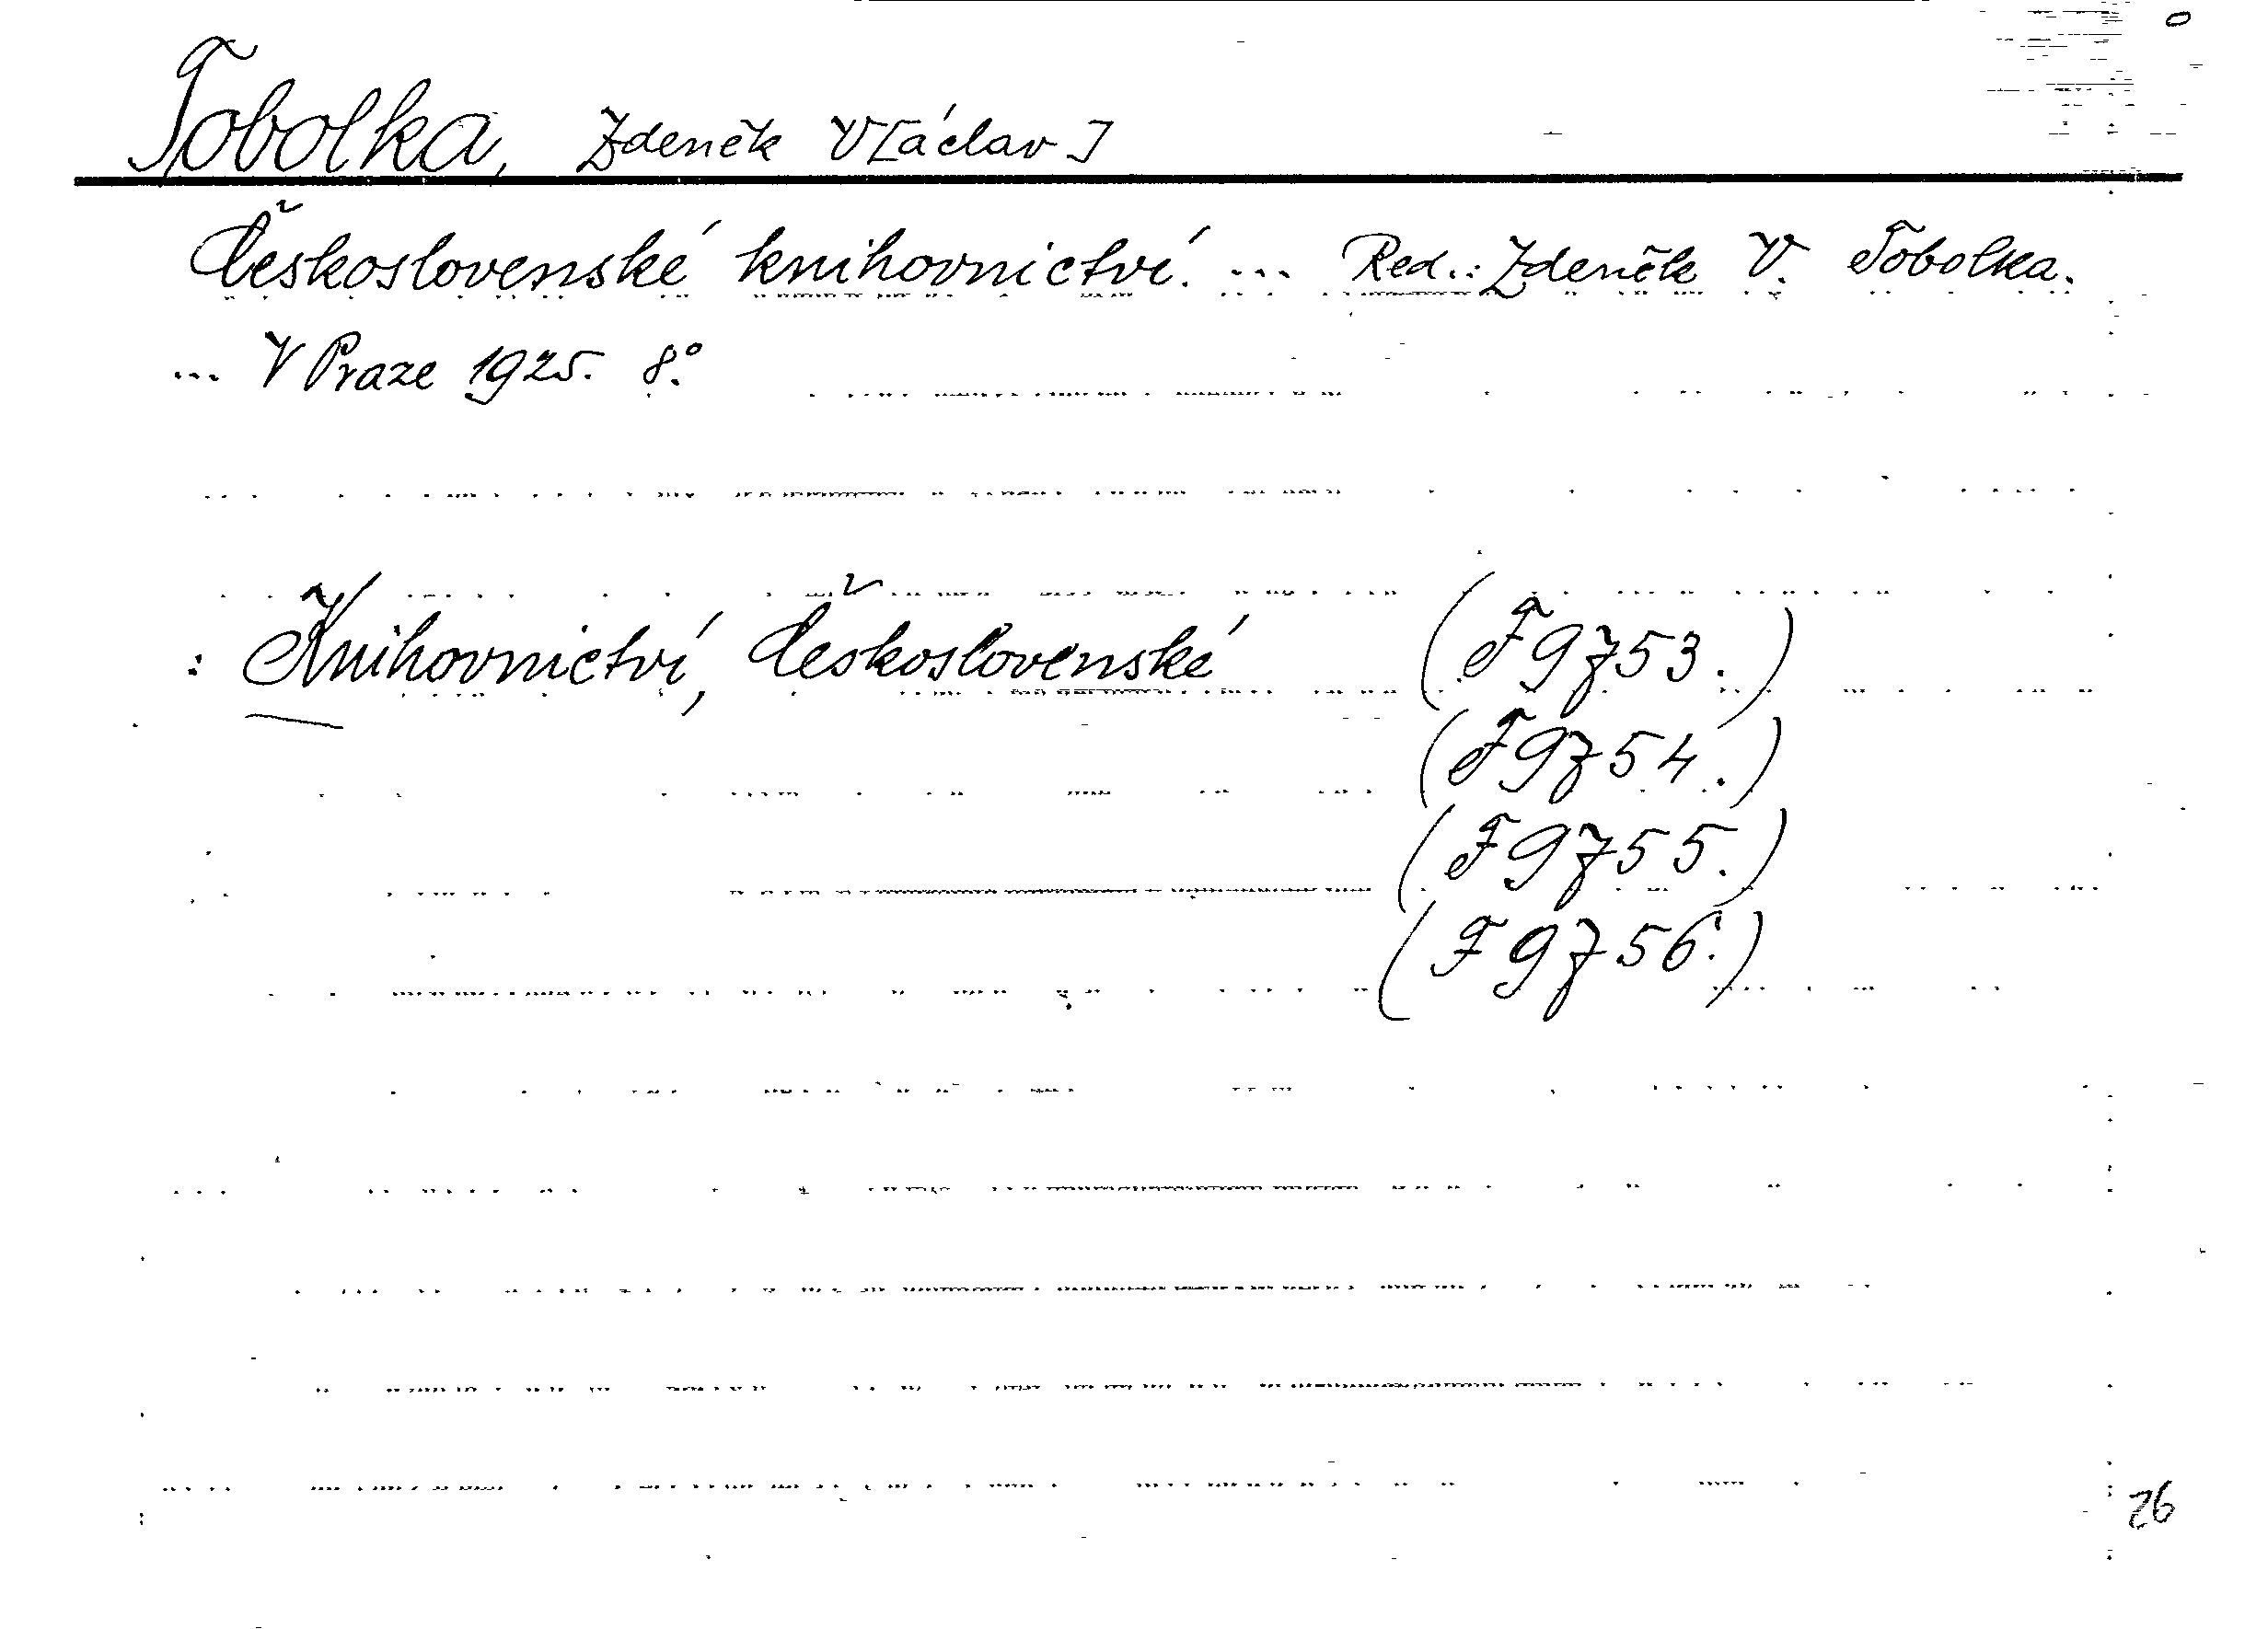 Tobolka, Zdeněk V[áclav]
Československé knihovnictví. ... Red.: Zdeněk V. Tobolka.
... V Praze 1925. 8.°
: Knihovnictví, Československé (F 9753.)
(F 9754.)
(F 9755.)
(F 9756.)
26